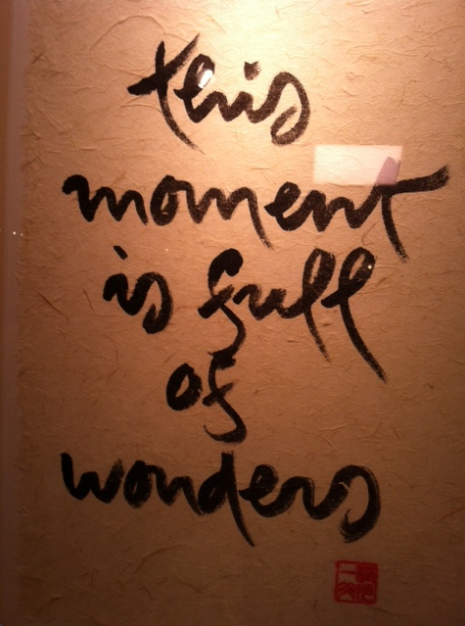 this
moment
is full
of
wonders